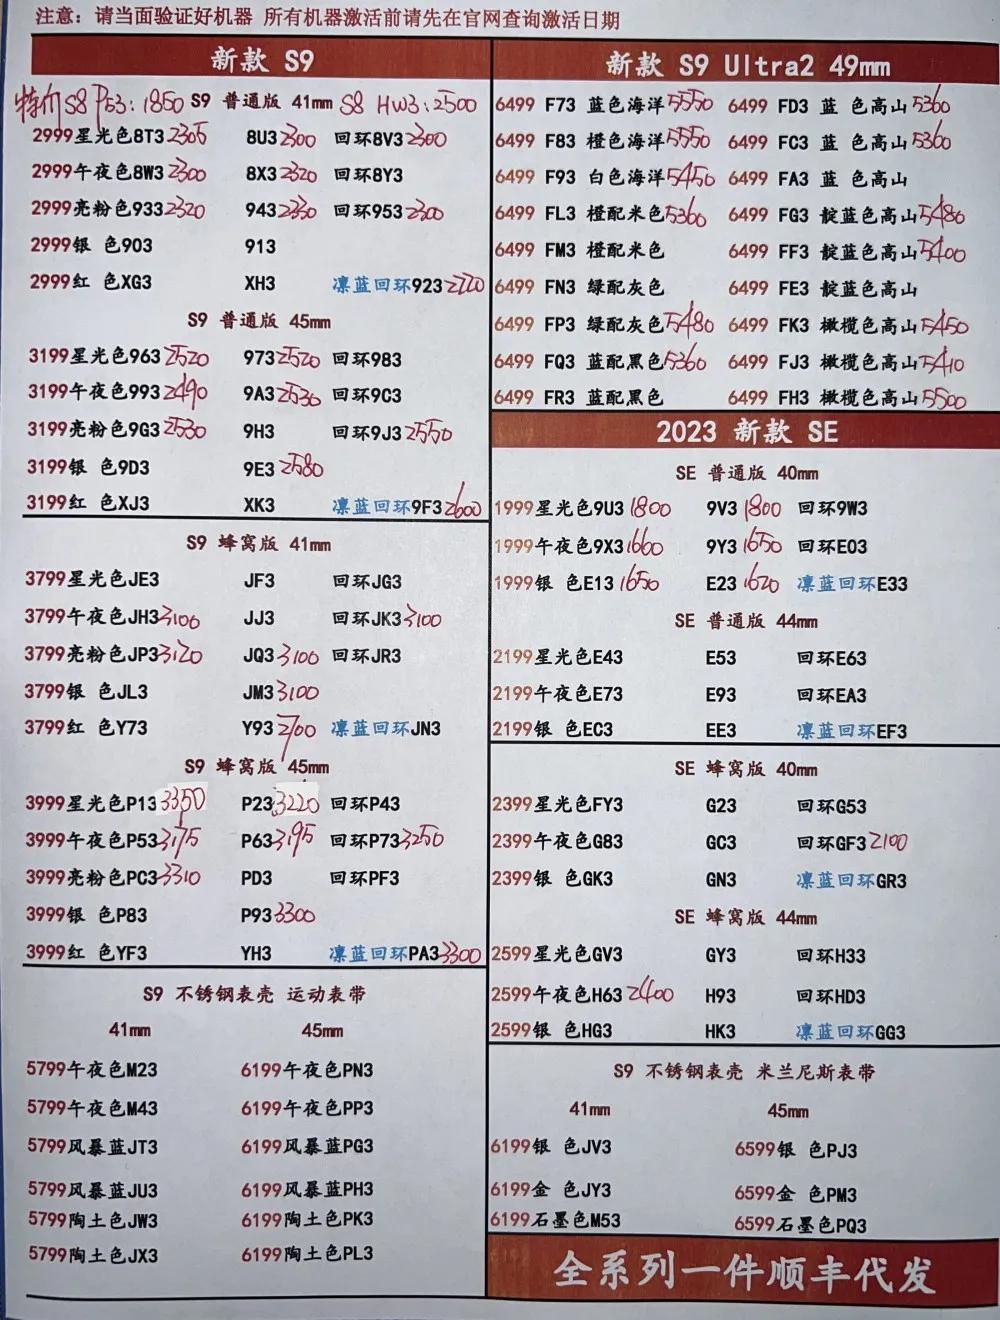 注意：请当面验证好机器 所有机器激活前请先在官网查询激活日期
新款 S9
特价 S8 P53：1850 S9 普通版 41mm S8 HW3：2500
2999星光色8T3 2305 8U3 2300 回环8V3 2300
2999午夜色8W3 2300 8X3 2320 回环8Y3
2999亮粉色933 2320 943 2330 回环953 2300
2999银 色903 913
2999红 色XG3 XH3 凛蓝回环923 2220
S9 普通版 45mm
3199星光色963 2520 973 2520 回环983
3199午夜色993 2490 9A3 2530 回环9C3
3199亮粉色9G3 2530 9H3 回环9J3 2550
3199银 色9D3 9E3 2580
3199红 色XJ3 XK3 凛蓝回环9F3 2600
S9 蜂窝版 41mm
3799星光色JE3 JF3 回环JG3
3799午夜色JH3 3100 JJ3 回环JK3 3100
3799亮粉色JP3 3120 JQ3 3100 回环JR3
3799银 色JL3 JM3 3100
3799红 色Y73 Y93 2700 凛蓝回环JN3
S9 蜂窝版 45mm
3999星光色P13 3350 P23 3220 回环P43
3999午夜色P53 3175 P63 3195 回环P73 3250
3999亮粉色PC3 3310 PD3 回环PF3
3999银 色P83 P93 3300
3999红 色YF3 YH3 凛蓝回环PA3 3300
S9 不锈钢表壳 运动表带
41mm 45mm
5799午夜色M23 6199午夜色PN3
5799午夜色M43 6199午夜色PP3
5799风暴蓝JT3 6199风暴蓝PG3
5799风暴蓝JU3 6199风暴蓝PH3
5799陶土色JW3 6199陶土色PK3
5799陶土色JX3 6199陶土色PL3
新款 S9 Ultra2 49mm
6499 F73 蓝色海洋 5550 6499 FD3 蓝 色高山 5360
6499 F83 橙色海洋 5550 6499 FC3 蓝 色高山 5360
6499 F93 白色海洋 5450 6499 FA3 蓝 色高山
6499 FL3 橙配米色 5360 6499 FG3 靛蓝色高山 5480
6499 FM3 橙配米色 6499 FF3 靛蓝色高山 5400
6499 FN3 绿配灰色 6499 FE3 靛蓝色高山
6499 FP3 绿配灰色 5480 6499 FK3 橄榄色高山 5450
6499 FQ3 蓝配黑色 5360 6499 FJ3 橄榄色高山 5410
6499 FR3 蓝配黑色 6499 FH3 橄榄色高山 5500
2023 新款 SE
SE 普通版 40mm
1999星光色9U3 1800 9V3 1800 回环9W3
1999午夜色9X3 1660 9Y3 1650 回环E03
1999银 色E13 1650 E23 1620 凛蓝回环E33
SE 普通版 44mm
2199星光色E43 E53 回环E63
2199午夜色E73 E93 回环EA3
2199银 色EC3 EE3 凛蓝回环EF3
SE 蜂窝版 40mm
2399星光色FY3 G23 回环G53
2399午夜色G83 GC3 回环GF3 2100
2399银 色GK3 GN3 凛蓝回环GR3
SE 蜂窝版 44mm
2599星光色GV3 GY3 回环H33
2599午夜色H63 2400 H93 回环HD3
2599银 色HG3 HK3 凛蓝回环GG3
S9 不锈钢表壳 米兰尼斯表带
41mm 45mm
6199银 色JV3 6599银 色PJ3
6199金 色JY3 6599金 色PM3
6199石墨色M53 6599石墨色PQ3
全系列一件顺丰代发